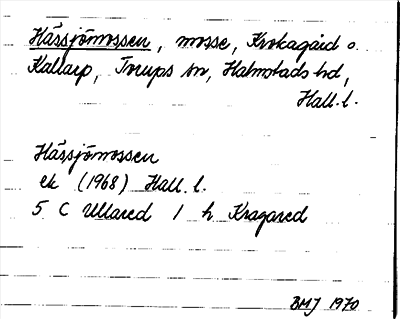 Hässjömossen, mosse, Krokagård o.
Kallarp, Torups sn, Halmstads hd,
Hall. l.
Hässjömossen
ek (1968) Hall. l.
5 C Ullared 1 h Kragared
BMJ 1970